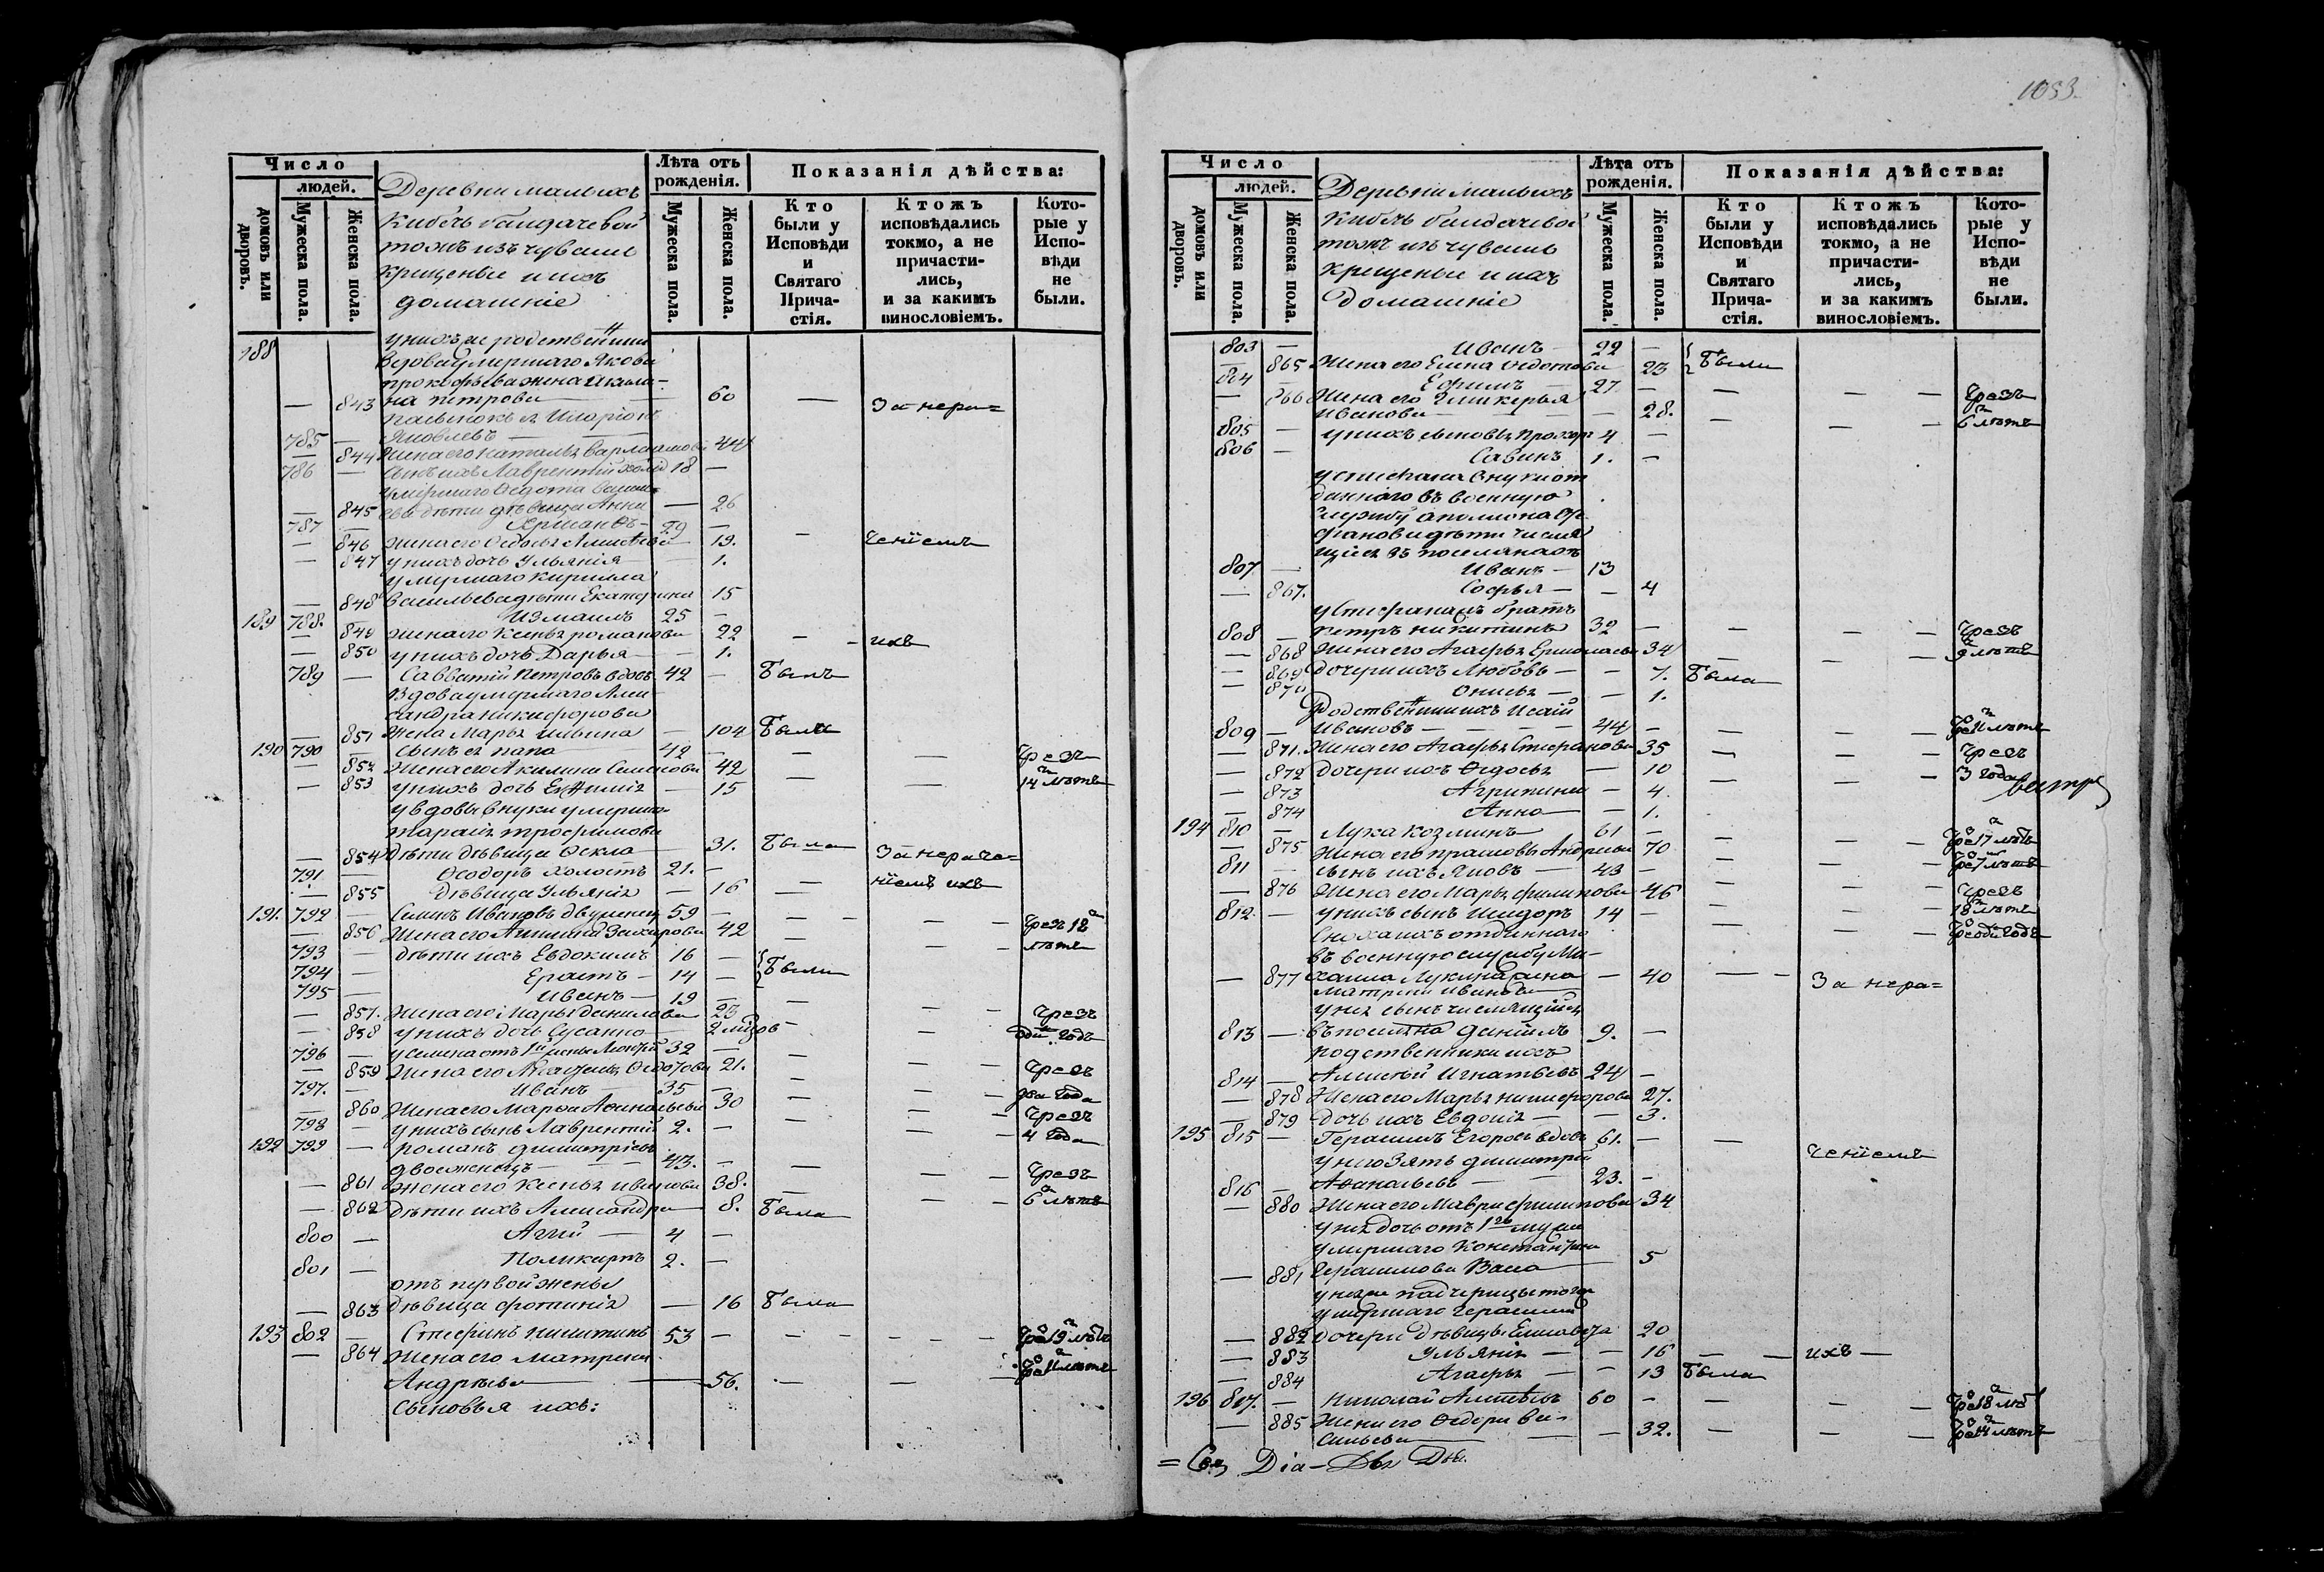 1033.
Число
людей.
домовъ или дворовъ.
Мужеска пола.
Женска пола.
Деревни малыхъ
Кибечь байдачевой
тожъ изъ чувашъ
крещеные и ихъ
домашніе
Лѣта отъ рожденія.
Мужеска пола.
Женска пола.
Показанія дѣйства:
Кто были у Исповѣди и Святаго Прича- стія.
Ктожъ исповѣдались токмо, а не причасти- лись, и за какимъ винословіемъ.
Кото- рые у Испо- вѣди не были.
188 у нихъ же родственники
вдова умершаго Якова
прокофьева жена Акили-
— 843 на петрова — 60 — За нера=
Иларіонъ
785 — Яковлевъ 44
— 844 жена его Наталья варламова
786 — сынъ ихъ Лаврентий 18 —
умершаго Ѳедота
— 845 дѣти дѣвица Анна — 26
787 — Германъ — 29 —
— 846 жена его Ѳедосья — 19. — ченіемъ
— 847 у нихъ дочь Ульянія — 1.
умершаго кирилла
— 848 васильева дѣти Екатерина 15
189 788. Измаилъ 25 —
— 849 жена его Ксенья романова 22 — — ихъ
— 850 у нихъ дочь Дарья — 1.
789 — Савватій Петровъ вдовъ 42 — Былъ
Вдова умершаго Алек-
сандра никифорова
— 851 жена Марья ильина — 104 Была
190 790 — сынъ ея 42 — — Чрезъ
— 852 жена его Акилина Семенова 42 — — 14 лѣтъ
— 853 у нихъ дочь — 15
у вдовы внуки умерша-
тарасія трофимова
— 854 дѣти дѣвица Ѳекла — 31. Была За нераче=
791 — Ѳеодоръ холостъ 21. —
— 855 дѣвица Ульянія — 16 — ніемъ ихъ
191. 792 — Иванов двоеженец 59 — — — Чрезъ 12
— 856 жена его Захарова 42 — — лѣтъ
793 — дѣти ихъ Евдокимъ 16 —
794 — Ерастъ — 14 — Были
795 — Иванъ — 19 —
— 857. жена его Марья данилова 23 — — Чрезъ
— 858 у нихъ дочь Сусанна — одинъ годъ
796 — у Семена отъ 1й жены 32 —
— 859 жена его Ѳедотова 21. — — Чрезъ
797. — Иванъ — 35 — — два года
— 860 жена его Марья 30 — — Чрезъ
798 — у нихъ сынъ Лаврентий 2. — — 4 года
192 799 — романъ димитріевъ
двоеженецъ — 43. — — Чрезъ
— 861 жена его Ксенья иванова 38. — — 6 лѣтъ
— 862 дѣти ихъ Александра — 8. Была
800 — 4 —
801 — Поликарпъ 2. —
отъ первой жены
— 863 дѣвица фотинія — 16 Была
193 802 — Стефанъ никитинъ 53 — — — 19 лѣтъ
— 864 жена его матрена
Андреева — 56. — — 11 лѣтъ
Сыновья ихъ:
Число
людей.
домовъ или дворовъ.
Мужеска пола.
Женска пола.
Деревни малыхъ
Кибечь байдачевой
тожъ изъ чувашъ
крещеные и ихъ
домашніе
Лѣта отъ рожденія.
Мужеска пола.
Женска пола.
Показанія дѣйства:
Кто были у Исповѣди и Святаго Прича- стія.
Ктожъ исповѣдались токмо, а не причасти- лись, и за какимъ винословіемъ.
Кото- рые у Исповѣди не были.
803 — Иванъ — 22 —
— 865 Жена его Елена Ѳедотова 23 Были
804 — Ефимъ — 27 — — — Чрезъ
— 866 Жена его Гликерья
Иванова — 28. — — 6 лѣтъ
805 — у нихъ сыновья прохоръ 4 —
806 — Савинъ 1. —
у Стефана внуки от
даннаго въ военную
службу аполлона Сте
фанова дѣти числя
щіеся въ поселянахъ
807 — Иванъ — 13
— 867. Софья — — 4
у Стефана братъ
808 — петръ никитинъ 32 — — — Чрезъ
— 868 Жена его Агафья Ермолаева 34 — — 9 лѣтъ
— 869 дочери ихъ Любовь — — 7. Была
— 870 Онисья — — 1.
Родственник ихъ Исаій
809 — Ивановъ — 44 — — — 11 лѣтъ
— 871. Жена его Агафья Стефанова 35 — — Чрезъ
— 872 дочери ихъ Ѳедосья — 10 — — 3 года
— 873 Агрипина — 4.
— 874 Анна — 1.
194 810 — Лука козминъ 61 — — — 17 лѣтъ
— 875 Жена его Андреева 70 — — 7 лѣтъ
811 — сынъ ихъ Яковъ — 43 — — — Чрезъ
— 876 Жена его Марья филипова 46 — — 18 лѣтъ
812. — у нихъ сынъ 14 — — — один годъ
Сноха ихъ отданнаго
въ военную службу Ми-
— 877 хаила Лукина жена — 40 — — За нера=
матрена иванова
у нея сынъ числящійся
813 — въ поселянах даніилъ 9. —
родственники ихъ
814 — Алексѣй Игнатьевъ 24 —
— 878 Жена его Марья никифорова 27.
— 879 дочь ихъ Евдокія — — 3.
195 815 — Герасимъ Егоровъ вдовъ 61. — — ченіемъ
у него зять димитрій
816 — Аѳанасьевъ — 23. —
— 880 Жена его Мавра филипова 34
у нея дочь отъ 1го мужа
умершаго Константина
— 881 Герасимова Васса — 5
у него падчерицы тогож
умершаго Герасима
— 882 дочери дѣвицы Елисавета 20
— 883 Ульянія — — 16 — — ихъ —
— 884 Агафья — — 13 Была
196 817. — николай Алексѣевъ 60 — — — 18 лѣтъ
— 885 Жена его Ѳедора Ва-
сильева — 32. — — 14 лѣтъ